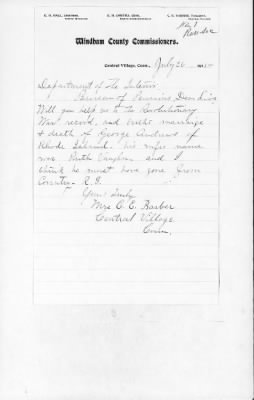 E. H. HALL, Chairman,
C. H.
Clerk,
Windham County Commissioners.
Central Village, Conn., July 26 191
Department of The Interior
Bureau of Pensions, Dear Sirs
Will you help me to the Revolutionary
War record, and birth, marriage
& death of George Andrews of
Rhode Island. his wifes name
was Ruth Vaughn and I
think he must have gone from
Coventry R. I.
Yours Truly
Mrs C. E. Barber
Central Village
Conn.